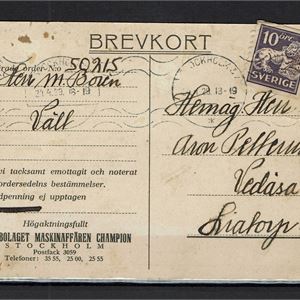 BREVKORT
order N:o 50215
Herr M. Boren
Väll
vi tacksamt emottagit och noterat
ordersedelns bestämmelser.
penning ej upptagen
Högaktningsfullt
BOLAGET MASKINAFFÄREN CHAMPION
STOCKHOLM
Postfack 3059
Telefoner: 35 55, 25 00, 25 55
29. 13-19
10 ÖRE
SVERIGE
Hemag. Herr
Aron
Vedåsa
Liatorp